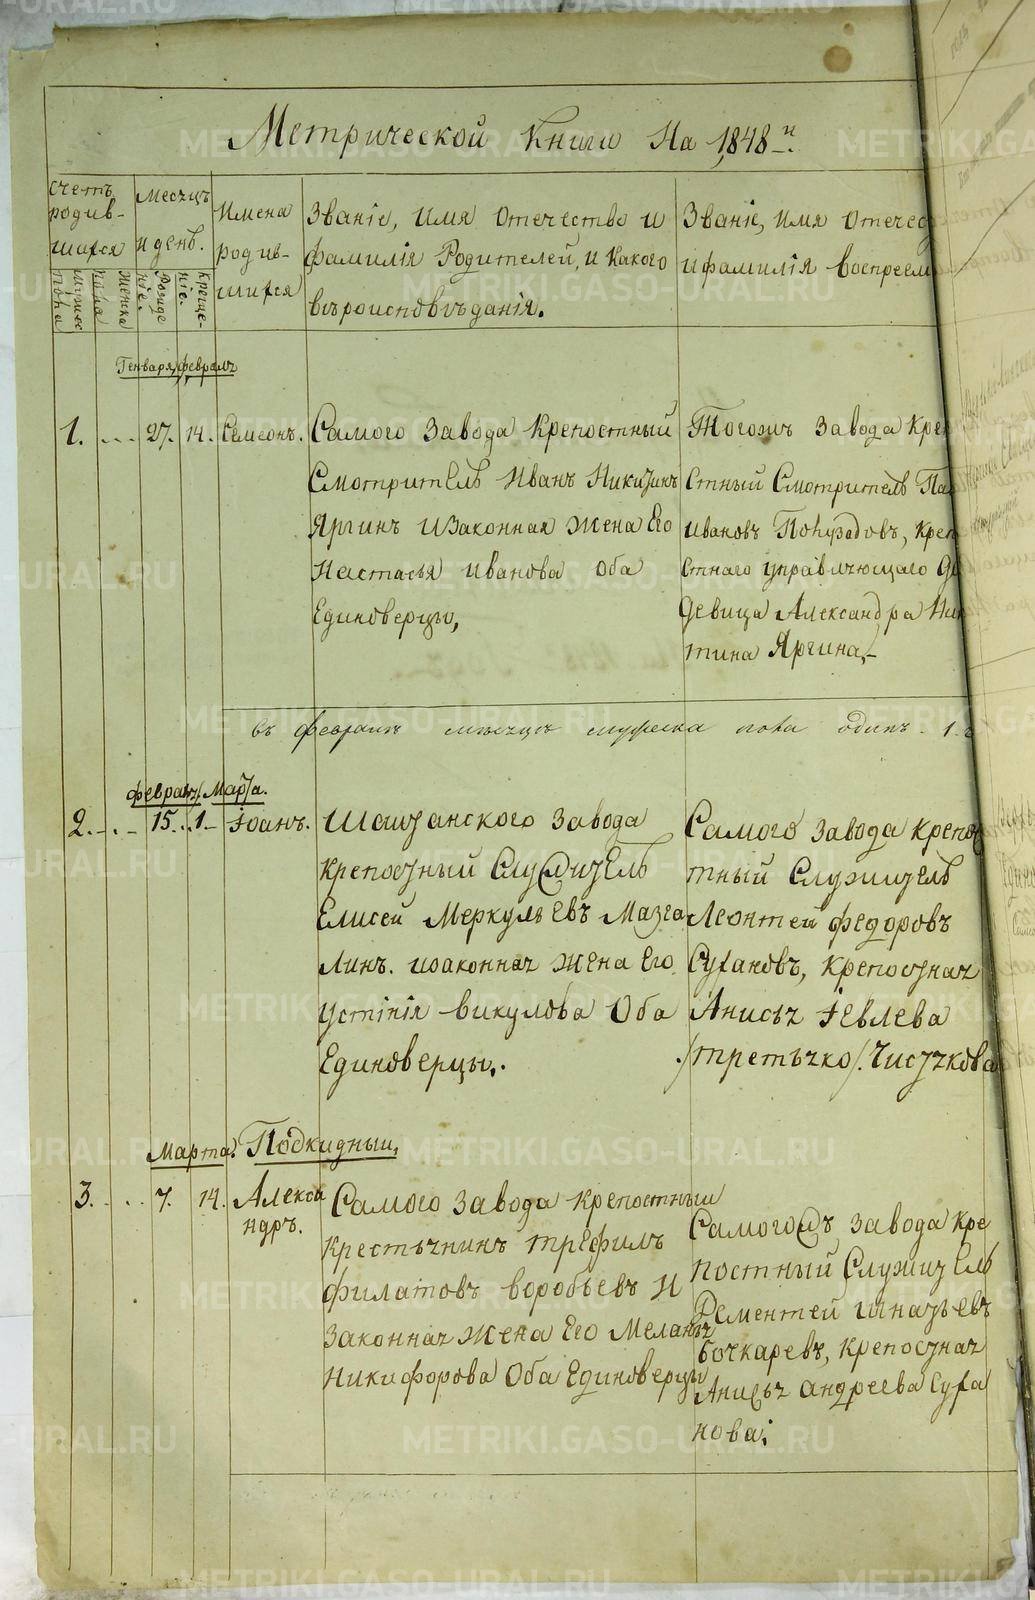 Метрической Книги На 1848-й.
счетъ родив-шихся
Месяцъ и день.
Имена родив-шихся
Званіе, имя отечество и
фамилія Родителей, и какого
въроисповъданія.
Званіе, имя отечес
и фамилія воспреем
Мужес пола
Женка
Рожде ніе.
Креще-ніе.
Генваря, февраль
1. ... 27. 14. Семеонъ.
Самого Завода Крепостный
Смотритель Иванъ Никитинъ
Яргинъ и Законная Жена Его
Настасья Иванова Оба
Единоверцы,
Тогожъ Завода Кре
стный Смотритель Па
Ивановъ Кре
стнаго управляющаго
Девица Александра Ник
тина Яргина,-
въ февралъ месяцъ мужеска пола одинъ. 1.
февраль/Марта.
2. ... 15. 1- Іоанъ.
Шайтанского Завода
Крепостный Служитель
Елисей Меркульевъ Мазга
линъ. и законная Жена Его
Устінія Викулова Оба
Единоверцы.
Самого Завода Крепос
тный Служитель
Леонтей Федоровъ
Сухановъ, Крепостная
Анисья Іевлева
/третьяко/. Чистякова
Марта. Подкидный,
3. ... 7. 14. Алекса
ндръ.
Самого Завода Крепостный
Крестьянинъ Трефилъ
Филатовъ Воробьевъ И
Законная Жена Его Меланья
Никифорова Оба Единоверцы
Самогожъ Завода Кре
постный Служитель
Дементей Игнатьевъ
Бочкаревъ, Крепостная
Анисья Андреева Суха
нова.
METRIKI.GASO-URAL.RU